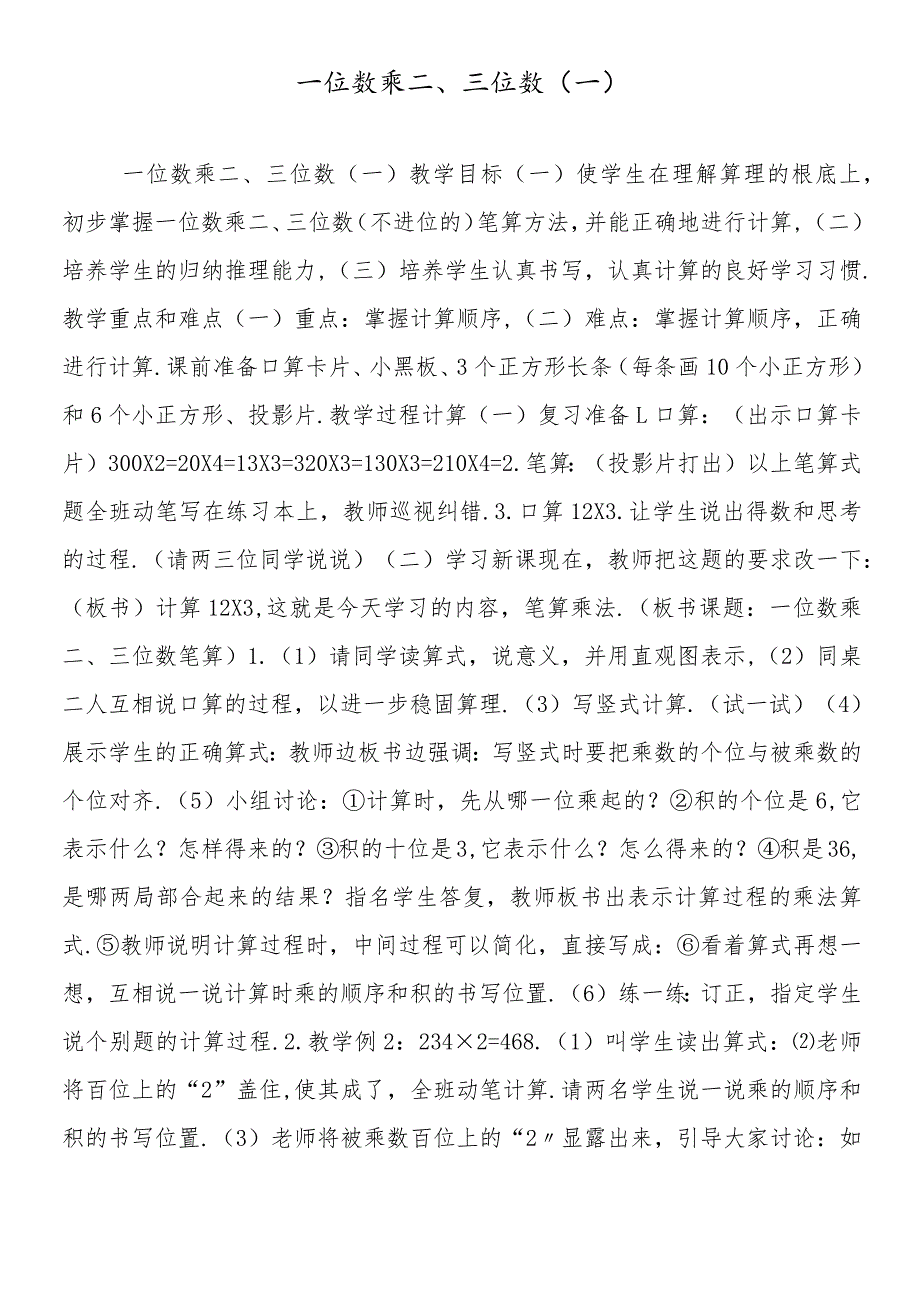 一位数乘二、三位数（一）
一位数乘二、三位数（一）教学目标（一）使学生在理解算理的根底上，
初步掌握一位数乘二、三位数（不进位的）笔算方法，并能正确地进行计算，（二）
培养学生的归纳推理能力，（三）培养学生认真书写，认真计算的良好学习习惯.
教学重点和难点（一）重点：掌握计算顺序，（二）难点：掌握计算顺序，正确
进行计算.课前准备口算卡片、小黑板、3个正方形长条（每条画10个小正方形）
和6个小正方形、投影片.教学过程计算（一）复习准备L口算：（出示口算卡
片）300X2=20X4=13X3=320X3=130X3=210X4=2.笔算：（投影片打出）以上笔算式
题全班动笔写在练习本上，教师巡视纠错.3.口算12X3.让学生说出得数和思考
的过程.（请两三位同学说说）（二）学习新课现在，教师把这题的要求改一下：
（板书）计算12X3,这就是今天学习的内容，笔算乘法.（板书课题：一位数乘
二、三位数笔算）1.（1）请同学读算式，说意义，并用直观图表示,（2）同桌
二人互相说口算的过程，以进一步稳固算理.（3）写竖式计算.（试一试）（4）
展示学生的正确算式：教师边板书边强调：写竖式时要把乘数的个位与被乘数的
个位对齐.（5）小组讨论：①计算时，先从哪一位乘起的？②积的个位是6,它
表示什么？怎样得来的？③积的十位是3,它表示什么？怎么得来的？④积是36,
是哪两局部合起来的结果？指名学生答复，教师板书出表示计算过程的乘法算
式.⑤教师说明计算过程时，中间过程可以简化，直接写成：⑥看着算式再想一
想，互相说一说计算时乘的顺序和积的书写位置.（6）练一练：订正，指定学生
说个别题的计算过程.2.教学例2：234×2=468.（1）叫学生读出算式：⑵老师
将百位上的“2”盖住,使其成了，全班动笔计算.请两名学生说一说乘的顺序和
积的书写位置.（3）老师将被乘数百位上的“2〃显露出来，引导大家讨论：如